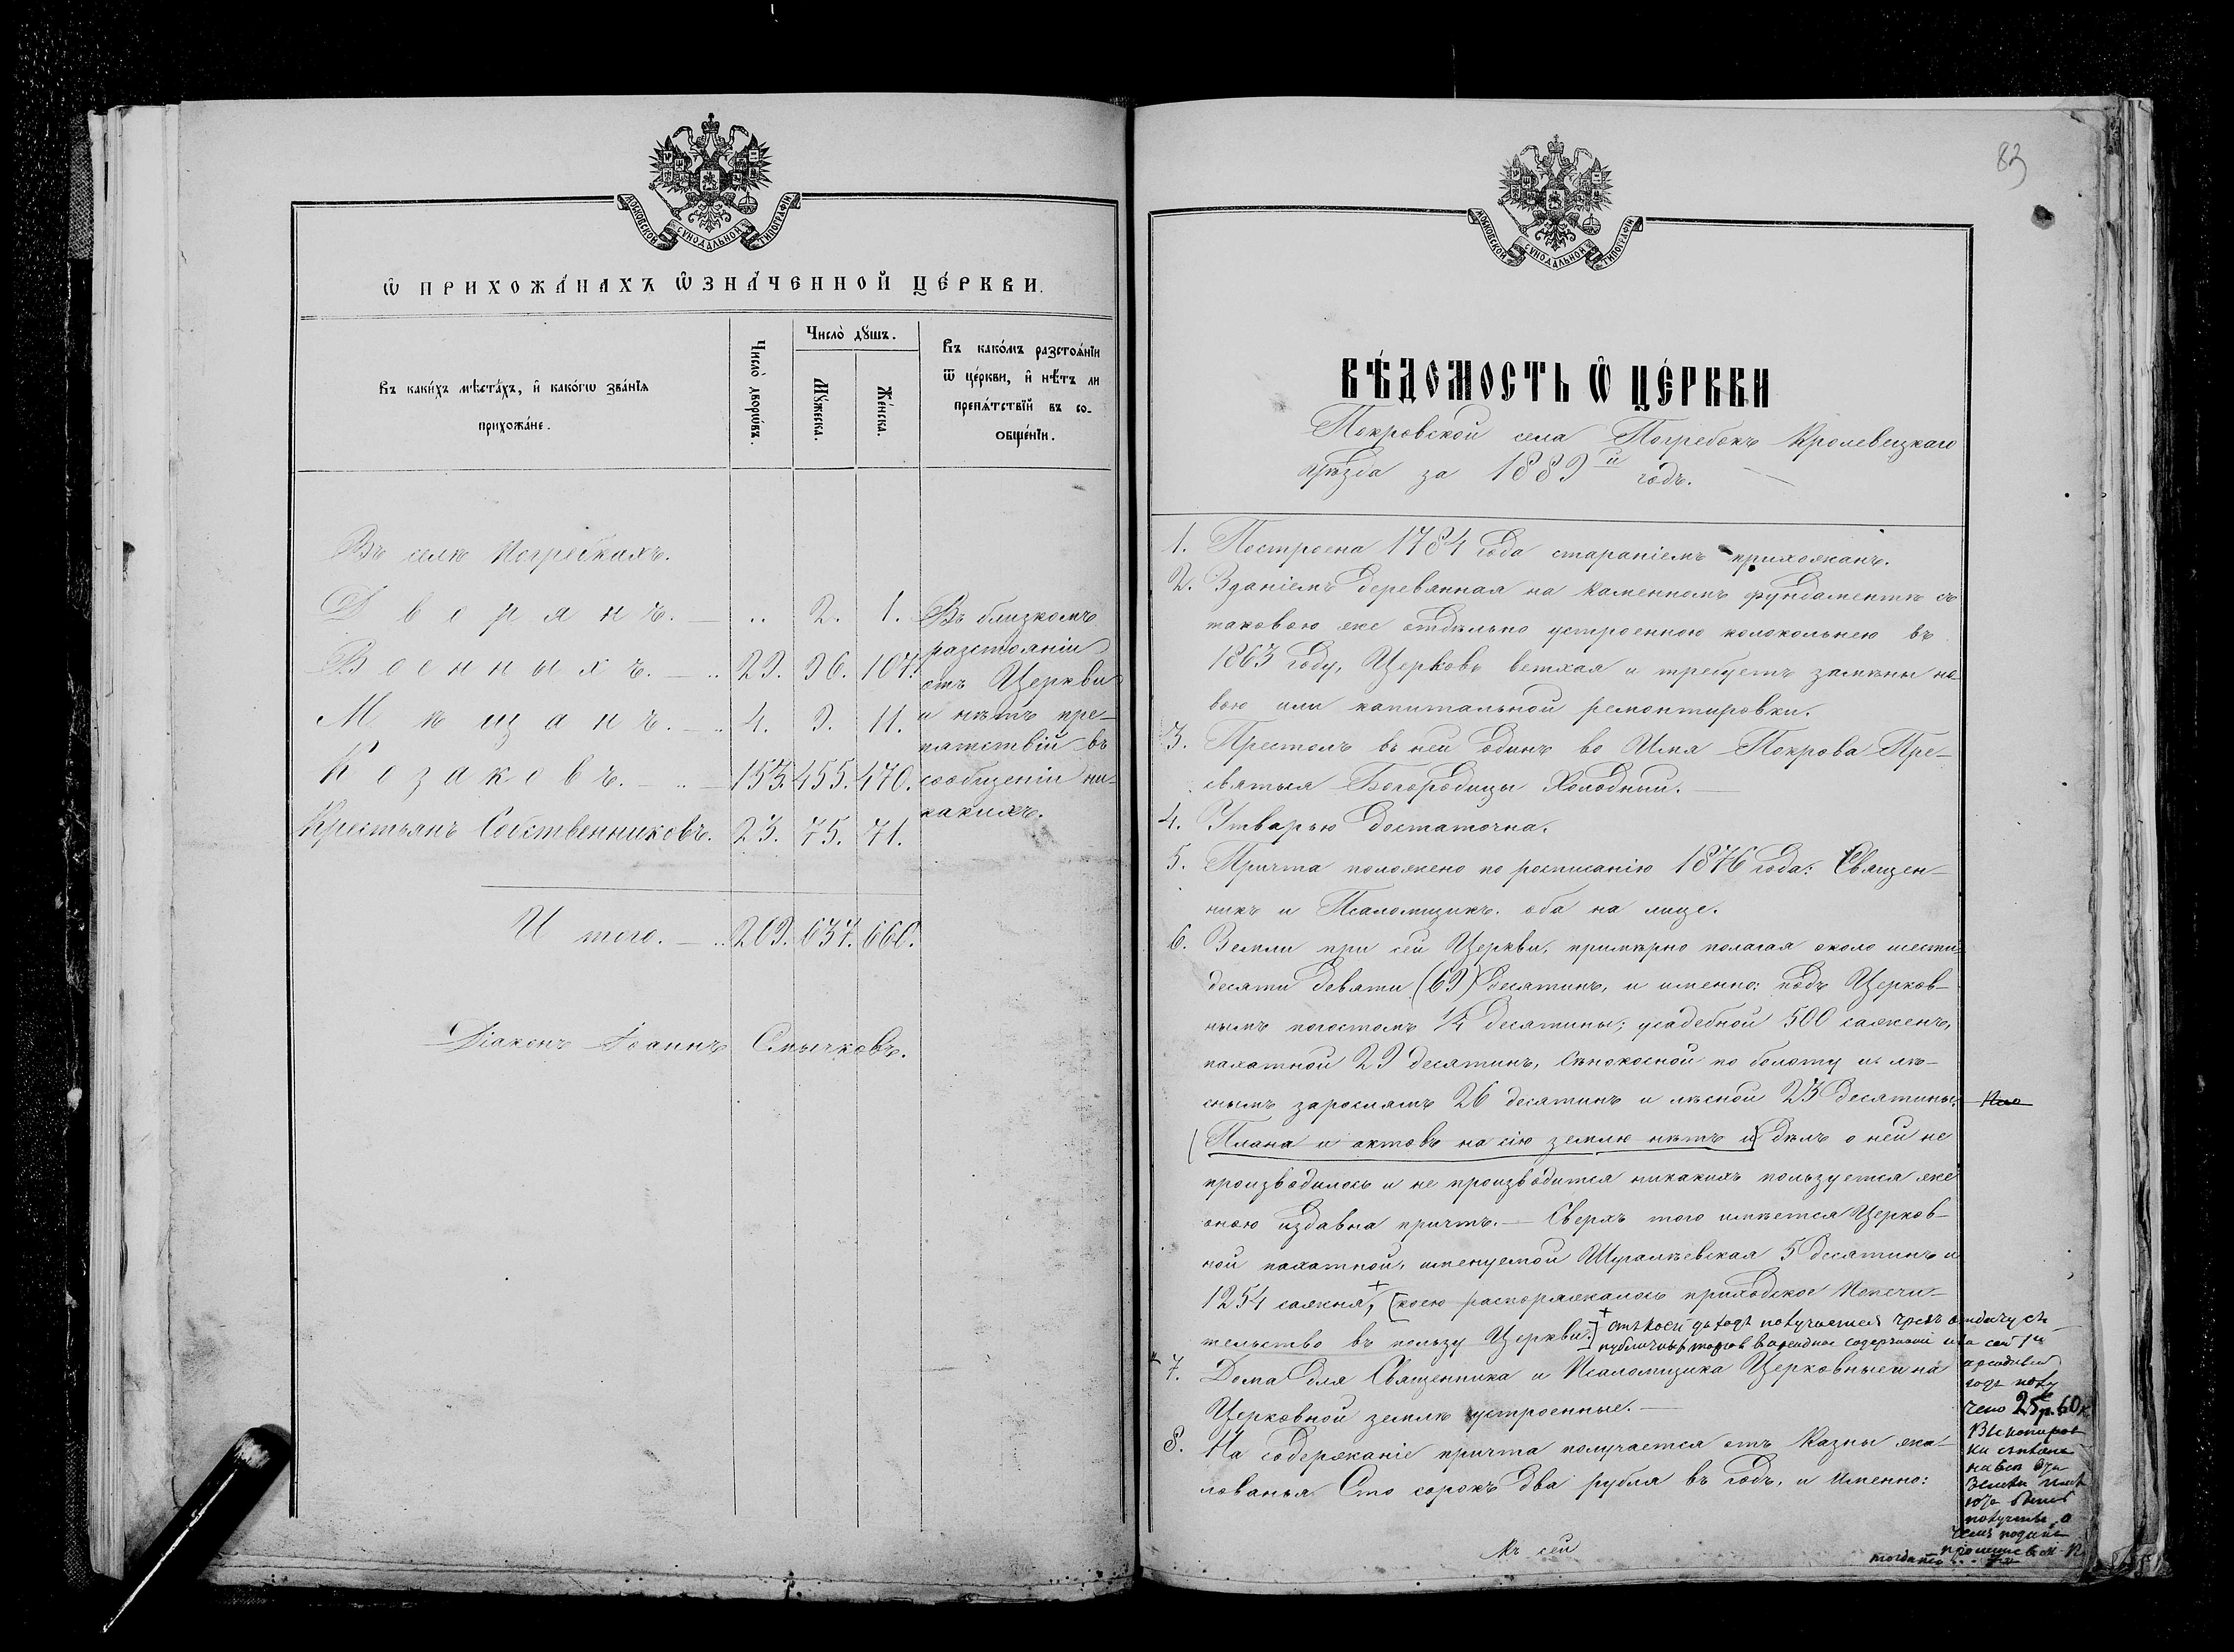 МОСКОВСКОЙ СѴНОДАЛЬНОЙ ТИПОГРАФІИ
Ѡ ПРИХОЖА́НАХЪ ѠЗНА́ЧЕННОЙ ЦЕ́РКВИ.
Въ каки́хъ мѣста́хъ, и҆ како́гѡ зва́нїѧ
прихожа́не.
Число̀ дворѡ́въ.
Число̀ дꙋшъ.
Мꙋ́жеска.
Же́нска.
Въ како́мъ разстоѧ́нїи
ѿ це́ркви, и҆ нѣ́тъ ли
препѧ́тствїй въ со-
ѻбще́нїи.
Въ селѣ Погребкахъ.
Дворянъ. — .. 2. 1.
Военныхъ. — .. 29. 96. 107.
Мѣщанъ. — .. 4. 9. 11.
Козаковъ. — .. — 153. 455. 470.
Крестьянъ Собственниковъ. 23. 75. 71.
Въ близкомъ
разстояніи
отъ Церкви
и нѣтъ пре-
пятствій въ
сообщеніи ни-
какихъ.
И того. — .. 209. 637. 660.
Діаконъ Іоаннъ Смычковъ.
83
МОСКОВСКОЙ СѴНОДАЛЬНОЙ ТИПОГРАФІИ
ВѢ́ДОМОСТЬ Ѡ҆ ЦЕ́РКВИ
Покровской села Погребокъ Кролевецкаго
уѣзда за 1889й годъ. —
1. Построена 1784 года стараніемъ прихожанъ.
2. Зданіемъ деревянная на каменномъ фундаментѣ съ
таковою же отдѣльно устроенною колокольнею въ
1863 году, Церковь ветхая и требуетъ замѣны но-
вою или капитальной ремонтировки.
3. Престолъ въ ней одинъ во Имя Покрова Пре-
святыя Богородицы Холодный. —
4. Утварью достаточна.
5. Причта положено по росписанію 1876 года: Священ-
никъ и Псаломщикъ. оба на лице.
6. Земли при сей Церкви, примѣрно полагая около шести-
десяти девяти (69) десятинъ, и именно: подъ Церков-
нымъ погостомъ 1/4 десятины; усадебной 500 саженъ,
пахатной 29 десятинъ, сѣнокосной по болоту и лѣ-
снымъ зарослямъ 26 десятинъ и лѣсной 23 десятины.
Плана и актовъ на сію землю нѣтъ и дѣлъ о ней не
производилось и не производится никакихъ пользуется же
оною издавна причтъ. — Сверхъ того имѣется Церков-
ной пахатной, именуемой Шуралѣевская 5 десятинъ и
1254 сажня,+ [коею распоряжалось приходское Попечи-
тельство въ пользу Церкви.] + отъ коей доходъ получается чрезъ отдачу съ
публичныхъ торговъ въ арендное содержаніе и за сей 1й
арендный
годъ полу
чено 25 р. 60 к
7. Дома для Священника и Псаломщика Церковные и на
Церковной землѣ устроенные. —
8. На содержаніе причта получается отъ Казны жа-
лованья Сто сорокъ два рубля въ годъ, и именно:
Къ сей